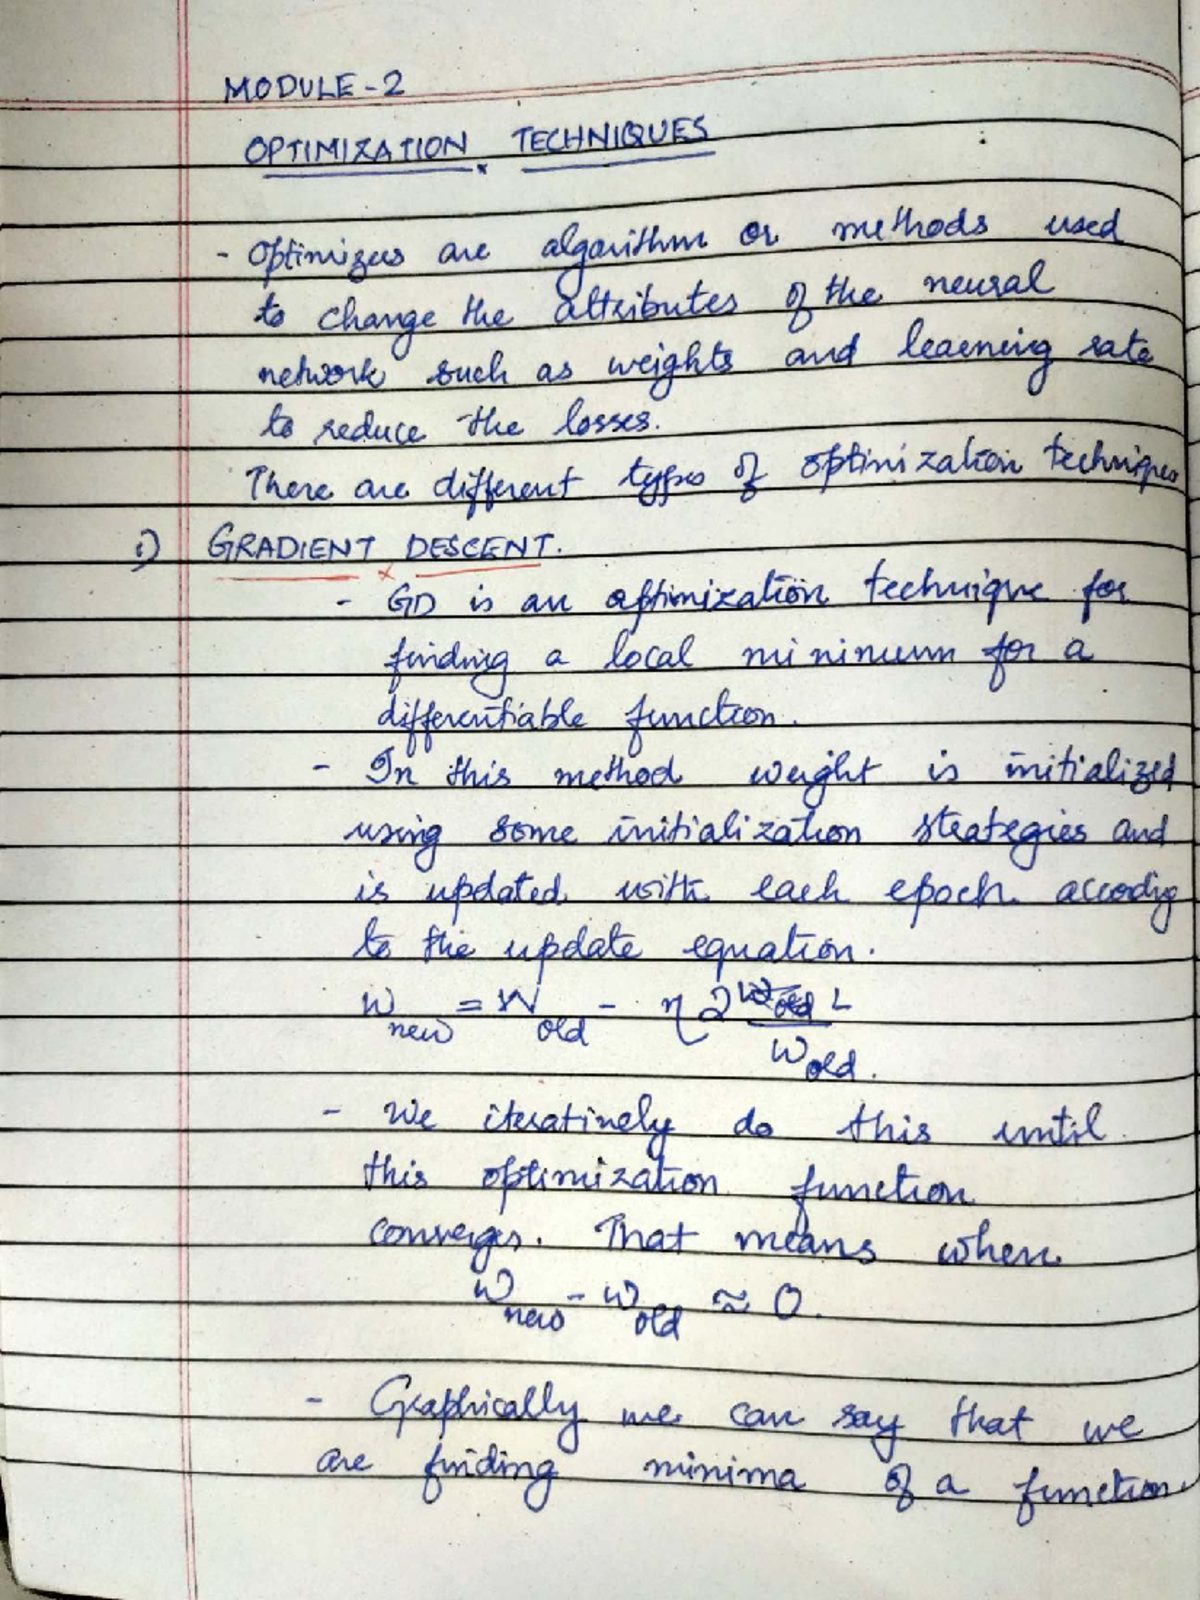 MODULE-2
OPTIMIZATION TECHNIQUES
- Optimizers are algorithm or methods used
to change the attributes of the neural
network such as weights and learning rate
to reduce the losses.
There are different types of optimization techniques
i) GRADIENT DESCENT.
- GD is an optimization technique for
finding a local minimum for a
differentiable function.
- In this method weight is initialized
using some initialization strategies and
is updated with each epoch according
to the update equation.
W new = W old - η ∂ L
W old.
- We iteratively do this until
this optimization function
converges. That means when
W new - W old ≈ 0.
- Graphically we can say that we
are finding minima of a function.